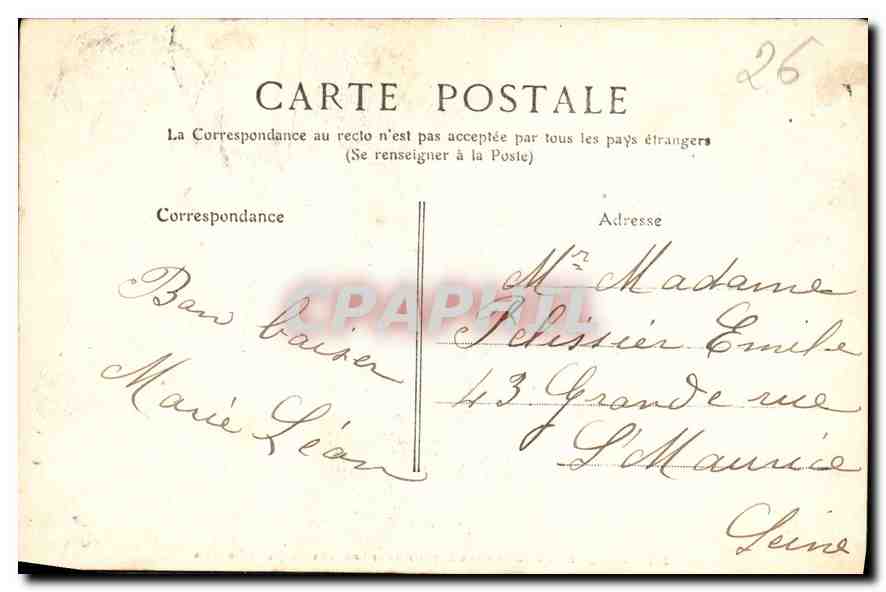 26
CARTE POSTALE
La Correspondance au recto n'est pas acceptée par tous les pays étrangers
(Se renseigner à la Poste)
Correspondance
Adresse
Bon baiser
Marie Léon
Mr Madame
Pelissier Emile
43 Grande rue
St Maurice
Seine
CPAPHIL